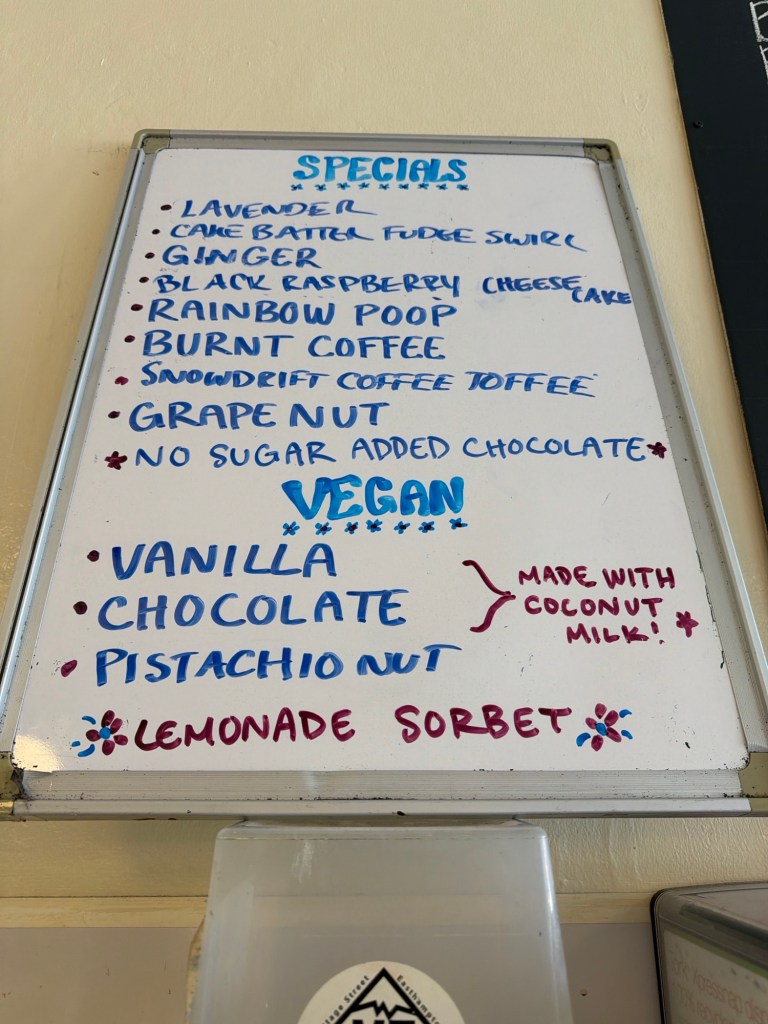 SPECIALS
• LAVENDER
• CAKE BATTER FUDGE SWIRL
• GINGER
• BLACK RASPBERRY CHEESE CAKE
• RAINBOW POOP
• BURNT COFFEE
• SNOWDRIFT COFFEE TOFFEE
• GRAPE NUT
NO SUGAR ADDED CHOCOLATE
VEGAN
• VANILLA
• CHOCOLATE
MADE WITH
COCONUT
MILK!
• PISTACHIO NUT
LEMONADE SORBET
Easthampton